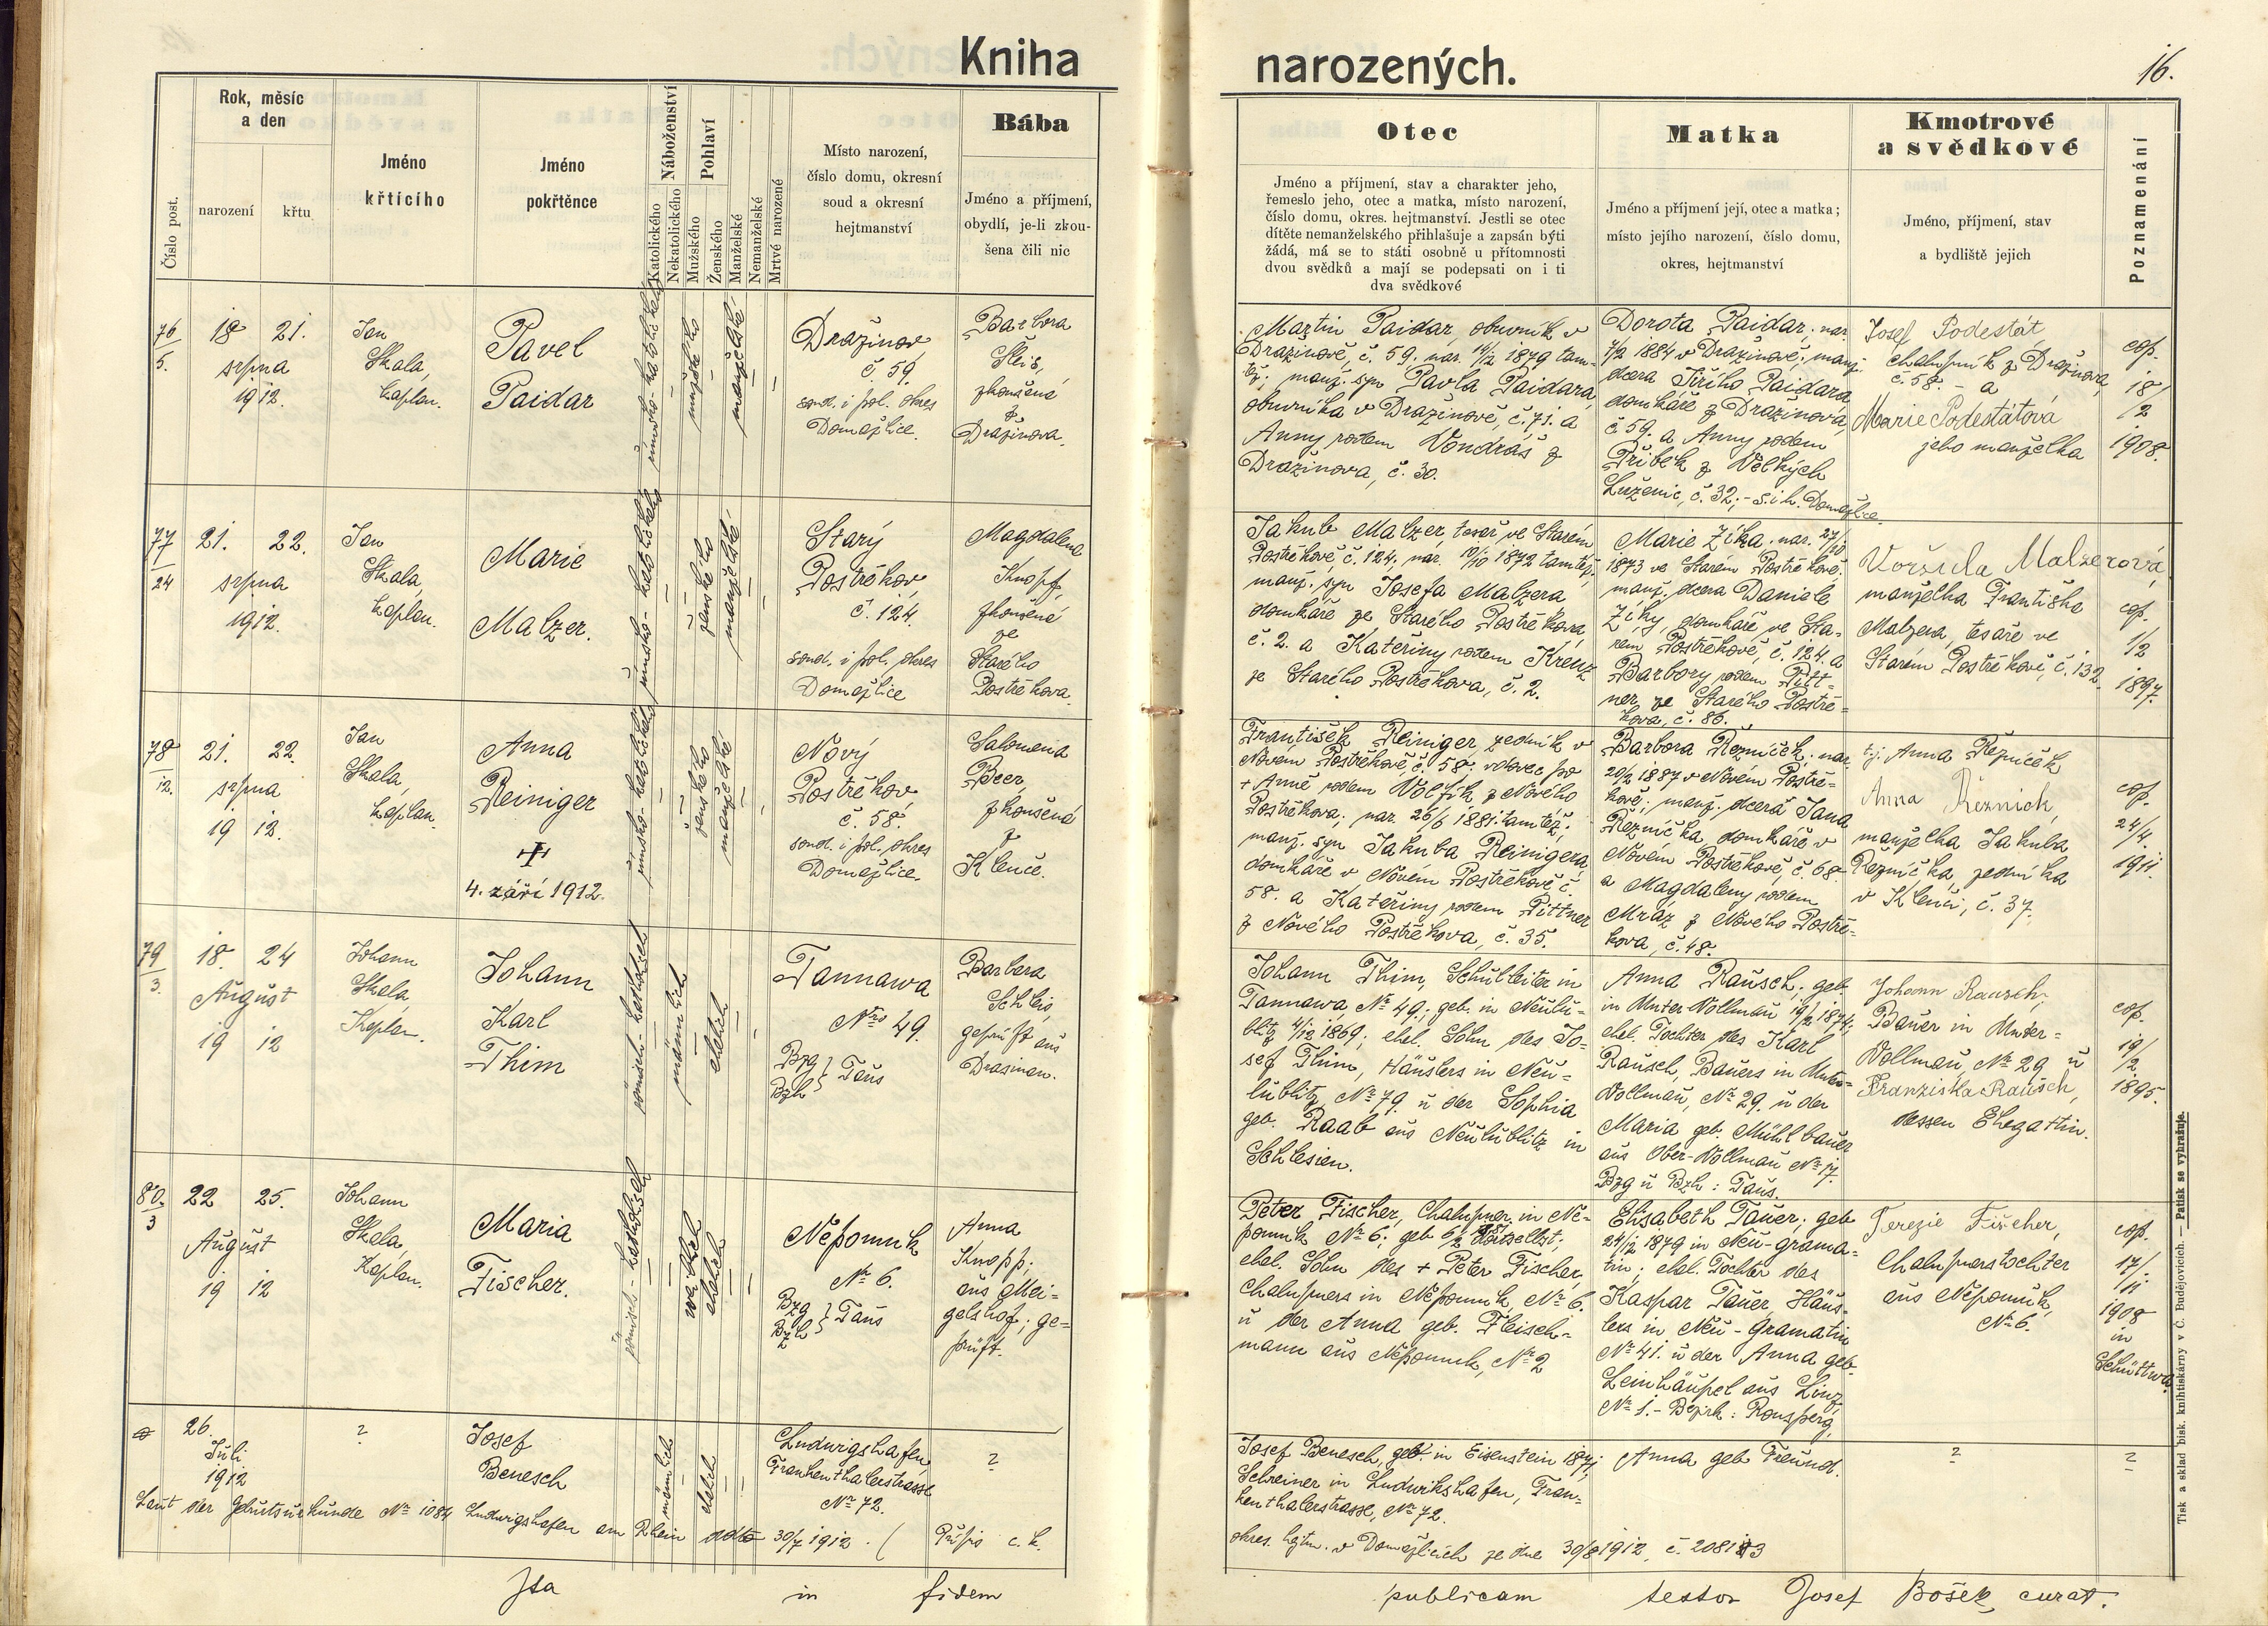 Kniha
narozených.
16.
Číslo post.
Rok, měsíc
a den
narození
křtu
Jméno
křtícího
Jméno
pokřtěnce
Náboženství
Katolického
Nekatolického
Pohlaví
Mužského
Ženského
Manželské
Nemanželské
Mrtvě narozené
Místo narození,
číslo domu, okresní
soud a okresní
hejtmanství
Bába
Jméno a příjmení,
obydlí, je-li zkou-
šena čili nic
Otec
Jméno a příjmení, stav a charakter jeho,
řemeslo jeho, otec a matka, místo narození,
číslo domu, okres. hejtmanství. Jestli se otec
dítěte nemanželského přihlašuje a zapsán býti
žádá, má se to státi osobně u přítomnosti
dvou svědků a mají se podepsati on i ti
dva svědkové
Matka
Jméno a příjmení její, otec a matka;
místo jejího narození, číslo domu,
okres, hejtmanství
Kmotrové
a svědkové
Jméno, příjmení, stav
a bydliště jejich
Poznamenání
76/5.
18 21.
srpna
1912.
Jan
Skala,
kaplan.
Pavel
Paidar
římsko-katolického
mužského
manželské
Dražinov
č. 59.
soud. i pol. okres
Domažlice.
Barbora
Šleis,
zkoušená
z
Dražinova.
Martin Paidar, obuvník v
Dražinově, č. 59. nar. 10/12 1879 tam-
též, manž. syn Pavla Paidara,
obuvníka v Dražinově, č. 71. a
Anny rodem Vondráš z
Dražinova, č. 30.
Dorota Paidar; nar.
7/2 1884 v Dražinově; manž.
dcera Jiřího Paidara,
domkáře z Dražinova,
č 59. a Anny rodem
Příbek z Velkých
Luženic, č. 32; - s. i h. Domažlice.
Josef Podestát,
chalupník z Dražinova,
č. 58. - a
Marie Podestátová
jeho manželka
cop.
18/
/2
1908.
77/24
21. 22.
srpna
1912.
Jan
Skala,
kaplan.
Marie
Malzer.
římsko-katolického
ženského
manželské
Starý
Postřekov,
č. 124.
soud. i pol. okres
Domažlice
Magdalena
Knopf,
zkoušená
ze
Starého
Postřekova.
Jakub Malzer tesař ve Starém
Postřekově, č. 124, nar. 10/10 1872 tamtéž.
manž. syn Josefa Malzera
domkáře ze Starého Postřekova,
č. 2. a Kateřiny rodem Kreuz
ze Starého Postřekova, č. 2.
Marie Zíka. nar. 27/10
1873 ve Starém Postřekově;
manž. dcera Daniele
Zíky, domkáře ve Sta-
rém Postřekově, č. 124. a
Barbory rodem Pitt-
ner, ze Starého Postře-
kova, č. 86.
Voršula Malzerová,
manželka Františka
Malzera, tesaře ve
Starém Postřekově, č. 132.
cop.
1/2
1897.
78/12.
21. 22.
srpna
19 12.
Jan
Skala,
kaplan.
Anna
Reiniger
+
4. září 1912.
římsko-katolického
ženského
manželské
Nový
Postřekov
č. 58.
soud. i pol. okres
Domažlice.
Salomena
Beer,
zkoušená
z
Klenče.
František Reiniger, zedník v
Novém Postřekově, č. 58. vdovec po
+ Anně rodem Volfík z Nového
Postřekova; nar. 26/6 1881 tamtéž;
manž. syn Jakuba Reinigera,
domkáře v Novém Postřekově č.
58. a Kateřiny rodem Pittner
z Nového Postřekova, č. 35.
Barbora Řezníček. nar.
20/2 1887 v Novém Postře-
kově; manž. dcera Jana
Řezníčka, domkáře v
Novém Postřekově, č. 68.
a Magdaleny rodem
Mráz z Nového Postře-
kova, č. 48.
t.j. Anna Řezníček
Anna Řeznich,
manželka Jakuba
Řezníčka, zedníka
v Klenčí, č. 37.
cop.
24/4.
1911.
79/3.
18. 24
August
19 12
Johann
Skala,
Kaplan.
Johann
Karl
Thim
römisch-katholisch
männlich
ehelich
Tannawa
Nro 49.
Bzg } Taus
Bzh
Barbara
Schleis,
geprüft aus
Drasinau.
Johann Thim, Schulleiter in
Tannawa, No 49.; geb. in Neulu-
blitz 4/12 1869; ehel. Sohn des Jo-
sef Thim, Häuslers in Neu-
lublitz, No 79. u der Sophia
geb. Raab aus Neulublitz in
Schlesien.
Anna Rausch; geb.
in Unter-Vollmau 19/2 1874;
ehel. Tochter des Karl
Rausch, Bauers in Unter-
Vollmau, No 29. u der
Maria geb. Mühlbauer
aus Ober-Vollmau No 17.
Bzg u Bzh: Taus.
Johann Rausch,
Bauer in Unter-
Vollmau, No 29 u
Franziska Rausch,
dessen Ehegattin.
cop.
19/
/2
1895.
80./3
22 25.
August
19 12
Johann
Skala,
Kaplan.
Maria
Fischer.
römisch-katholisch
weiblich
ehelich
Nepomuk
No 6.
Bzg } Taus
Bzh
Anna
Knopp;
aus Mei-
gelshof; ge-
prüft.
Peter Fischer, Chalupner in Ne-
pomuk No 6; geb 6/2 daselbst;
ehel. Sohn des + Peter Fischer,
Chalupners in Nepomuk, No 6.
u der Anna geb. Fleisch-
mann aus Nepomuk, No 2
Elisabeth Tauer; geb
24/12 1879 in Neu-Grama-
tin; ehel. Tochter des
Kaspar Tauer, Häus-
lers in Neu-Gramatin
No 41. u der Anna geb.
Leinhäupel aus Linz,
No 1. - Bezirk: Ronsperg,
Terezie Fischer,
Chalupnerstochter
aus Nepomuk,
No 6.
cop.
17/
/11
1908
in
Schüttwa.
26.
Juli
1912
?
Josef
Benesch
männlich
ehelich
Ludwigshafen
Frankenthalerstrasse
No 72.
?
Josef Benesch, geb. in Eisenstein 1871;
Schreiner in Ludwikshafen, Fran-
kenthalerstrasse, No 72.
Anna geb Freund.
?
?
Laut der Geburtsurkunde No 1084 Ludwigshafen am Rhein ddto 30/7 1912. ( Přípis c. k.
okres. hejtm. v Domažlicích ze dne 30/8 1912, č. 20813
Ita in fidem publicam testor Josef Bošek, curat.
Tisk a sklad bisk. knihtiskárny v Č. Budějovicích. — Patisk se vyhražuje.